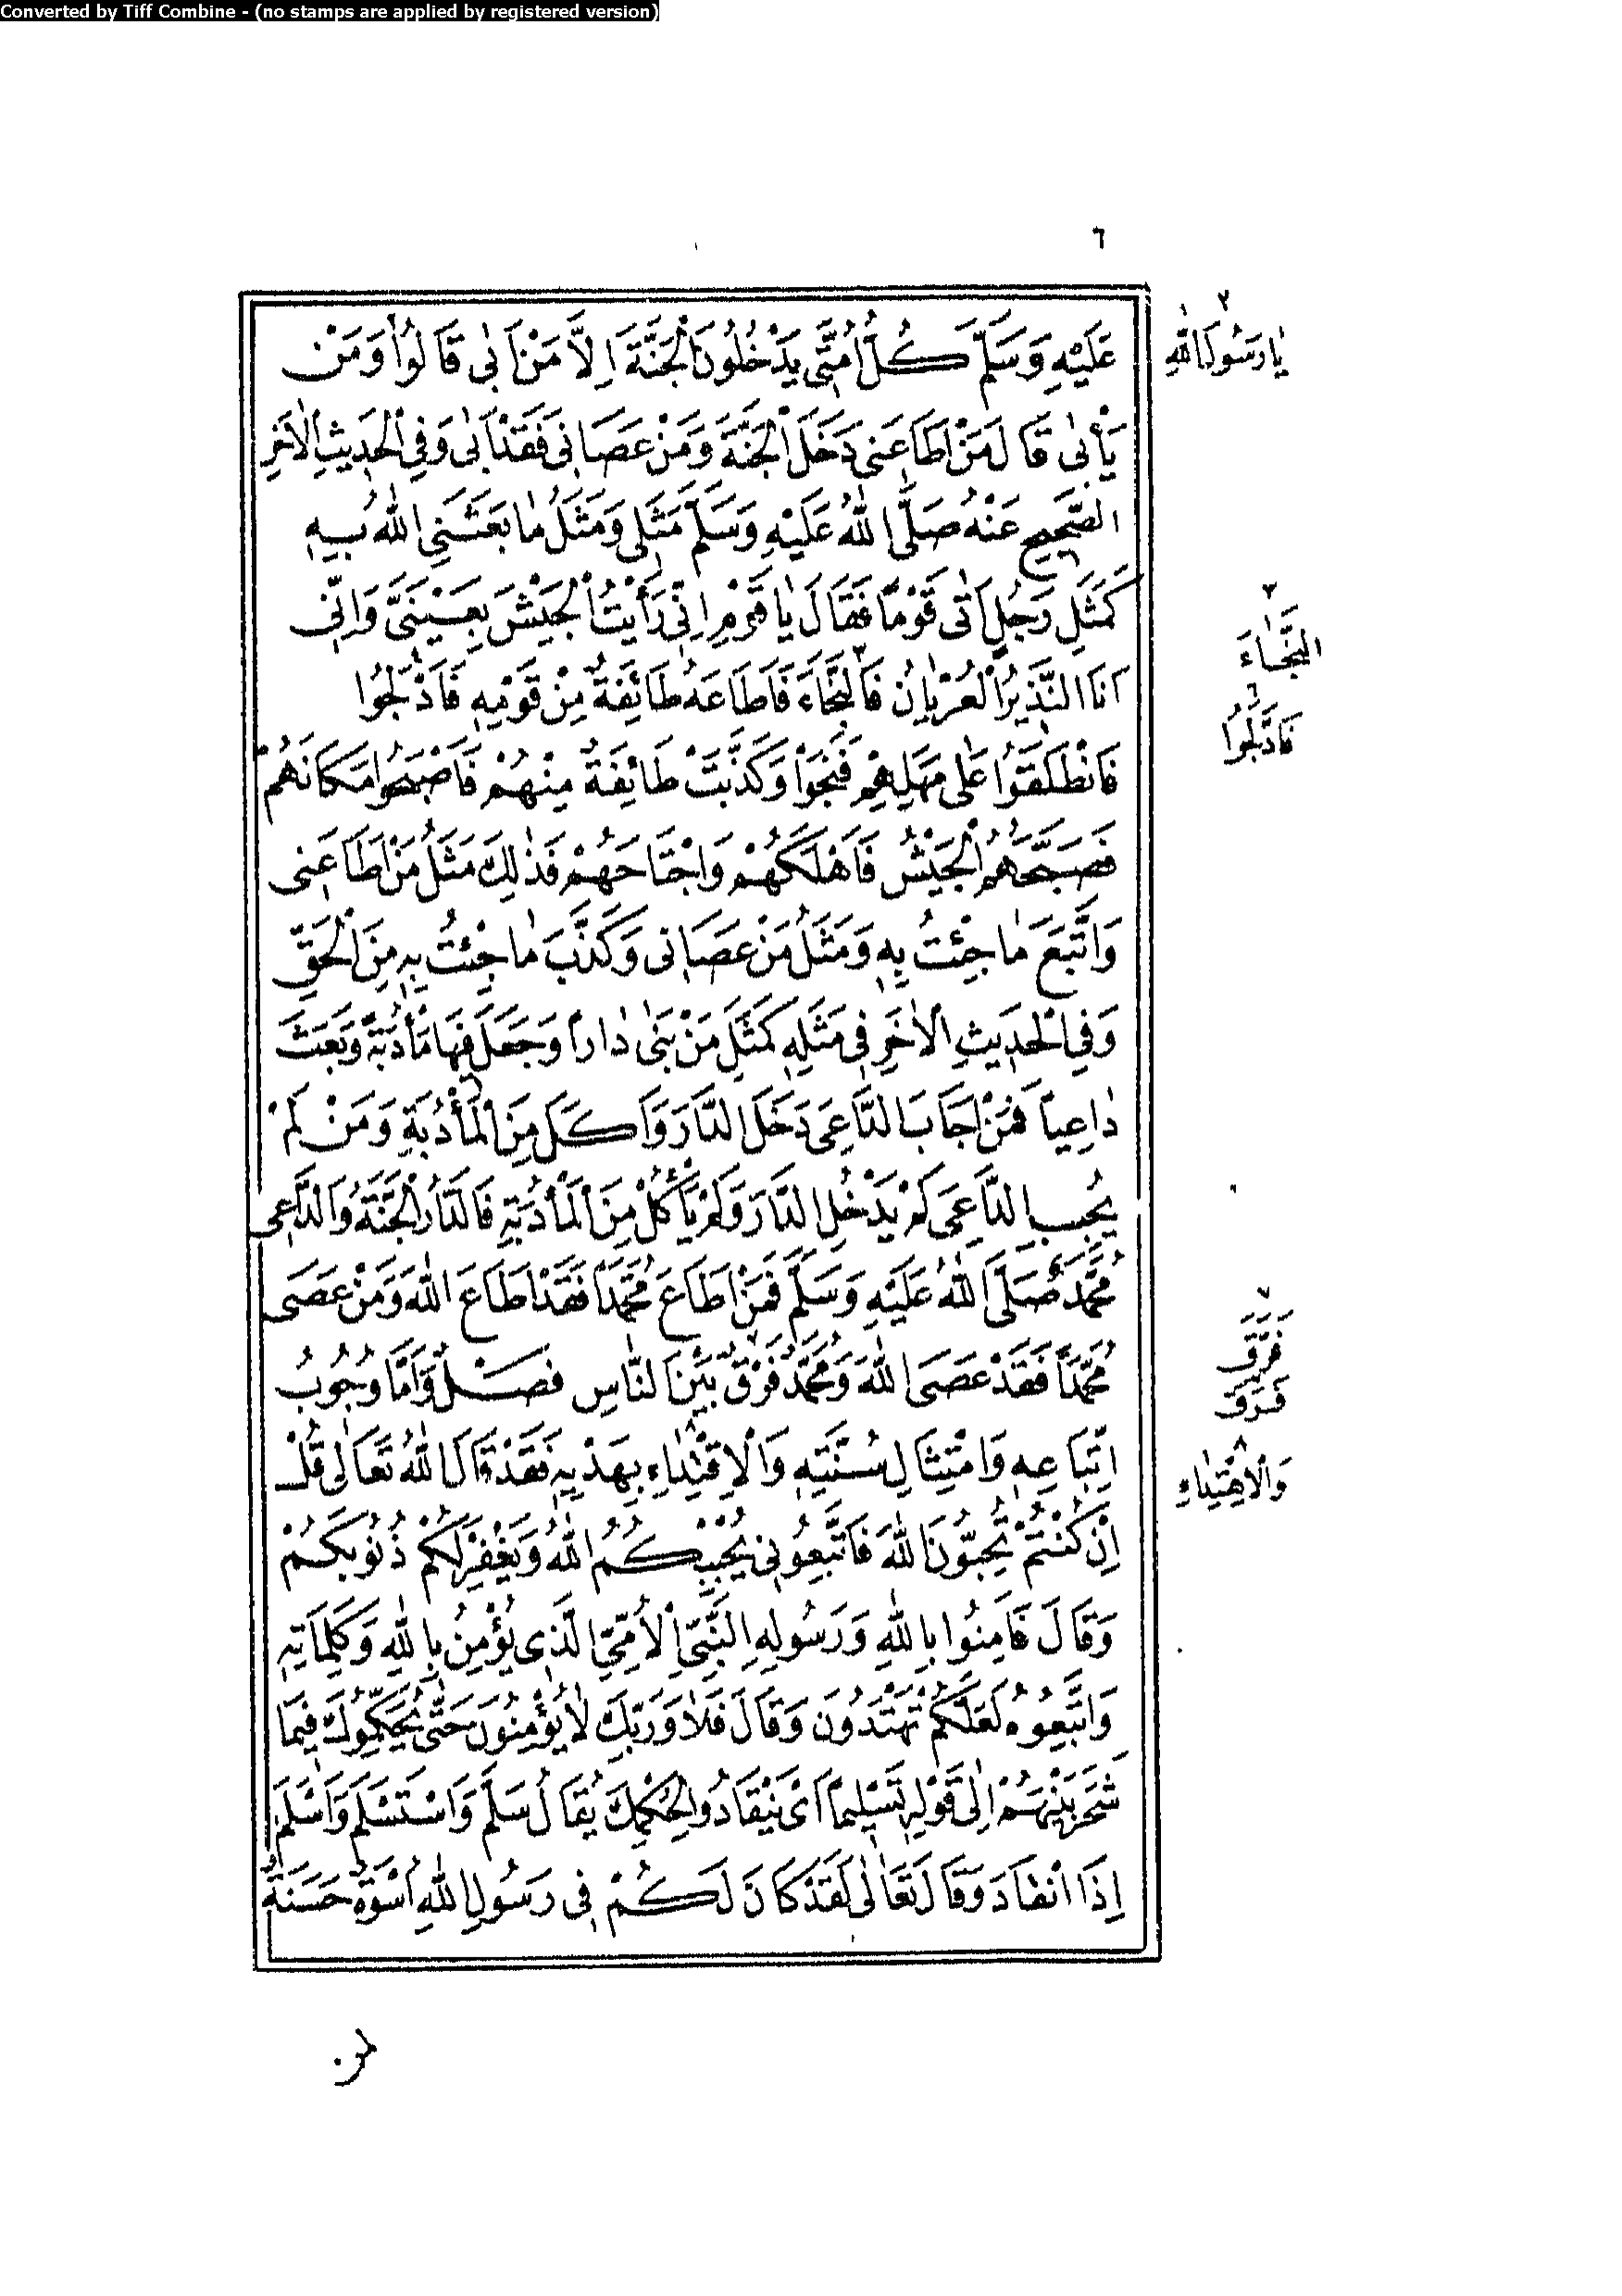 Converted by Tiff Combine - (no stamps are applied by registered version)
٦
عَلَيْهِ وَسَلَّمَ كُلُّ اُمَّتِى يَدْخُلُونَ الْجَنَّةَ اِلاَّ مَنْ اَبٰى قَالُوْا وَمَنْ
يَأْبٰى قَالَ مَنْ اَطَاعَنِى دَخَلَ الْجَنَّةَ وَمَنْ عَصَانِى فَقَدْ اَبٰى وَفِى الْحَدِيثِ الْاٰخَرِ
الصَّحِيحِ عَنْهُ صَلَّى اللّٰهُ عَلَيْهِ وَسَلَّمَ مَثَلِى وَمَثَلُ مٰا بَعَثَنِىَ اللّٰهُ بِهِ
كَمَثَلِ رَجُلٍ اَتٰى قَوْمًا فَقَالَ يٰا قَوْمِ اِنِّى رَأَيْتُ الْجَيْشَ بِعَيْنَىَّ وَاِنِّى
اَنَا النَّذِيرُ الْعُرْيٰانُ فَالنَّجَاءَ فَاَطَاعَهُ طَائِفَةٌ مِنْ قَوْمِهِ فَاَدْلَجُوا
فَانْطَلَقُوْا عَلٰى مَهَلِهِمْ فَنَجَوْا وَكَذَّبَتْ طَائِفَةٌ مِنْهُمْ فَاَصْبَحُوا مَكَانَهُمْ
فَصَبَّحَهُمُ الْجَيْشُ فَاَهْلَكَهُمْ وَاجْتَاحَهُمْ فَذٰلِكَ مَثَلُ مَنْ اَطَاعَنِى
وَاتَّبَعَ مٰا جِئْتُ بِهِ وَمَثَلُ مَنْ عَصَانِى وَكَذَّبَ مٰا جِئْتُ بِهِ مِنَ الْحَقِّ
وَفِى الْحَدِيثِ الْاٰخَرِ فِى مَثَلِهِ كَمَثَلِ مَنْ بَنٰى دٰارًا وَجَعَلَ فِيهَا مَأْدُبَةً وَبَعَثَ
دٰاعِيًا فَمَنْ اَجَابَ الدَّاعِىَ دَخَلَ الدَّارَ وَاَكَلَ مِنَ الْمَأْدُبَةِ وَمَنْ لَمْ
يُجِبِ الدَّاعِىَ لَمْ يَدْخُلِ الدَّارَ وَلَمْ يَأْكُلْ مِنَ الْمَأْدُبَةِ فَالدَّارُ الْجَنَّةُ وَالدَّاعِى
مُحَمَّدٌ صَلَّى اللّٰهُ عَلَيْهِ وَسَلَّمَ فَمَنْ اَطَاعَ مُحَمَّدًا فَقَدْ اَطَاعَ اللّٰهَ وَمَنْ عَصَى
مُحَمَّدًا فَقَدْ عَصَى اللّٰهَ وَمُحَمَّدٌ فَرْقٌ بَيْنَ النَّاسِ فَصْلٌ وَاَمَّا وُجُوبُ
اِتِّبَاعِهِ وَامْتِثَالِ سُنَّتِهِ وَالْاِقْتِدٰاءِ بِهَدْيِهِ فَقَدْ قَالَ اللّٰهُ تَعَالٰى قُلْ
اِنْ كُنْتُمْ تُحِبُّونَ اللّٰهَ فَاتَّبِعُونِى يُحْبِبْكُمُ اللّٰهُ وَيَغْفِرْ لَكُمْ ذُنُوبَكُمْ
وَقَالَ فَاٰمِنُوا بِاللّٰهِ وَرَسُولِهِ النَّبِىِّ الْاُمِّىِّ الَّذِى يُؤْمِنُ بِاللّٰهِ وَكَلِمَاتِهِ
وَاتَّبِعُوهُ لَعَلَّكُمْ تَهْتَدُونَ وَقَالَ فَلَا وَرَبِّكَ لٰا يُؤْمِنُونَ حَتّٰى يُحَكِّمُوكَ فِيمَا
شَجَرَ بَيْنَهُمْ اِلٰى قَوْلِهِ تَسْلِيمًا اَىْ يَنْقَادُوا لِحُكْمِكَ يُقَالُ سَلَّمَ وَاسْتَسْلَمَ وَاَسْلَمَ
اِذَا انْقَادَ وَقَالَ تَعَالٰى لَقَدْ كَانَ لَكُمْ فِى رَسُولِ اللّٰهِ اُسْوَةٌ حَسَنَةٌ
٢
يٰا رَسُولَ اللّٰهِ
٣
النَّجَاءَ
٦
فَادَّلَجُوا
٧
فَرَّقَ
فَرَقَ
٨
وَالْاِهْتِدٰاءِ
لمن